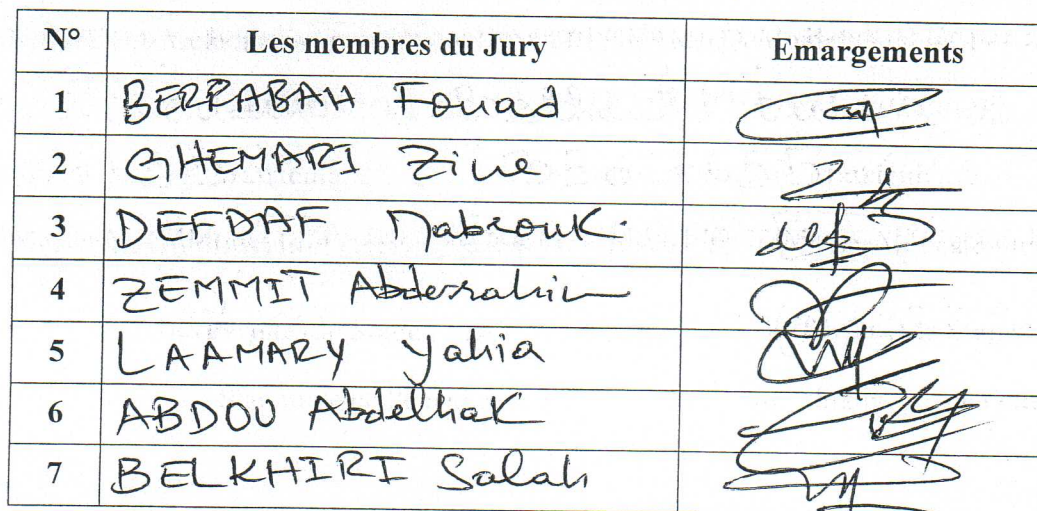 N° Les membres du Jury Emargements
1 BERRABAH Fouad
2 GHEMARI Zine
3 DEFDAF Mabrouk.
4 ZEMMIT Abderrahim
5 LAAMARY Yahia
6 ABDOU Abdelhak
7 BELKHIRI Salah